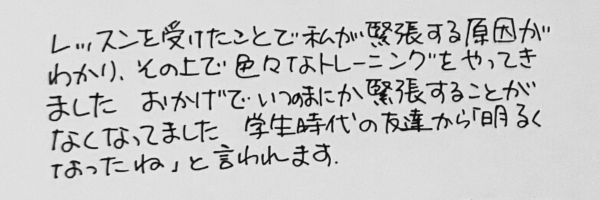 レッスンを受けたことで私が緊張する原因が
わかり、その上で色々なトレーニングをやってき
ました おかげでいつのまにか緊張することが
なくなってました 学生時代の友達から「明るく
なったね」と言われます.